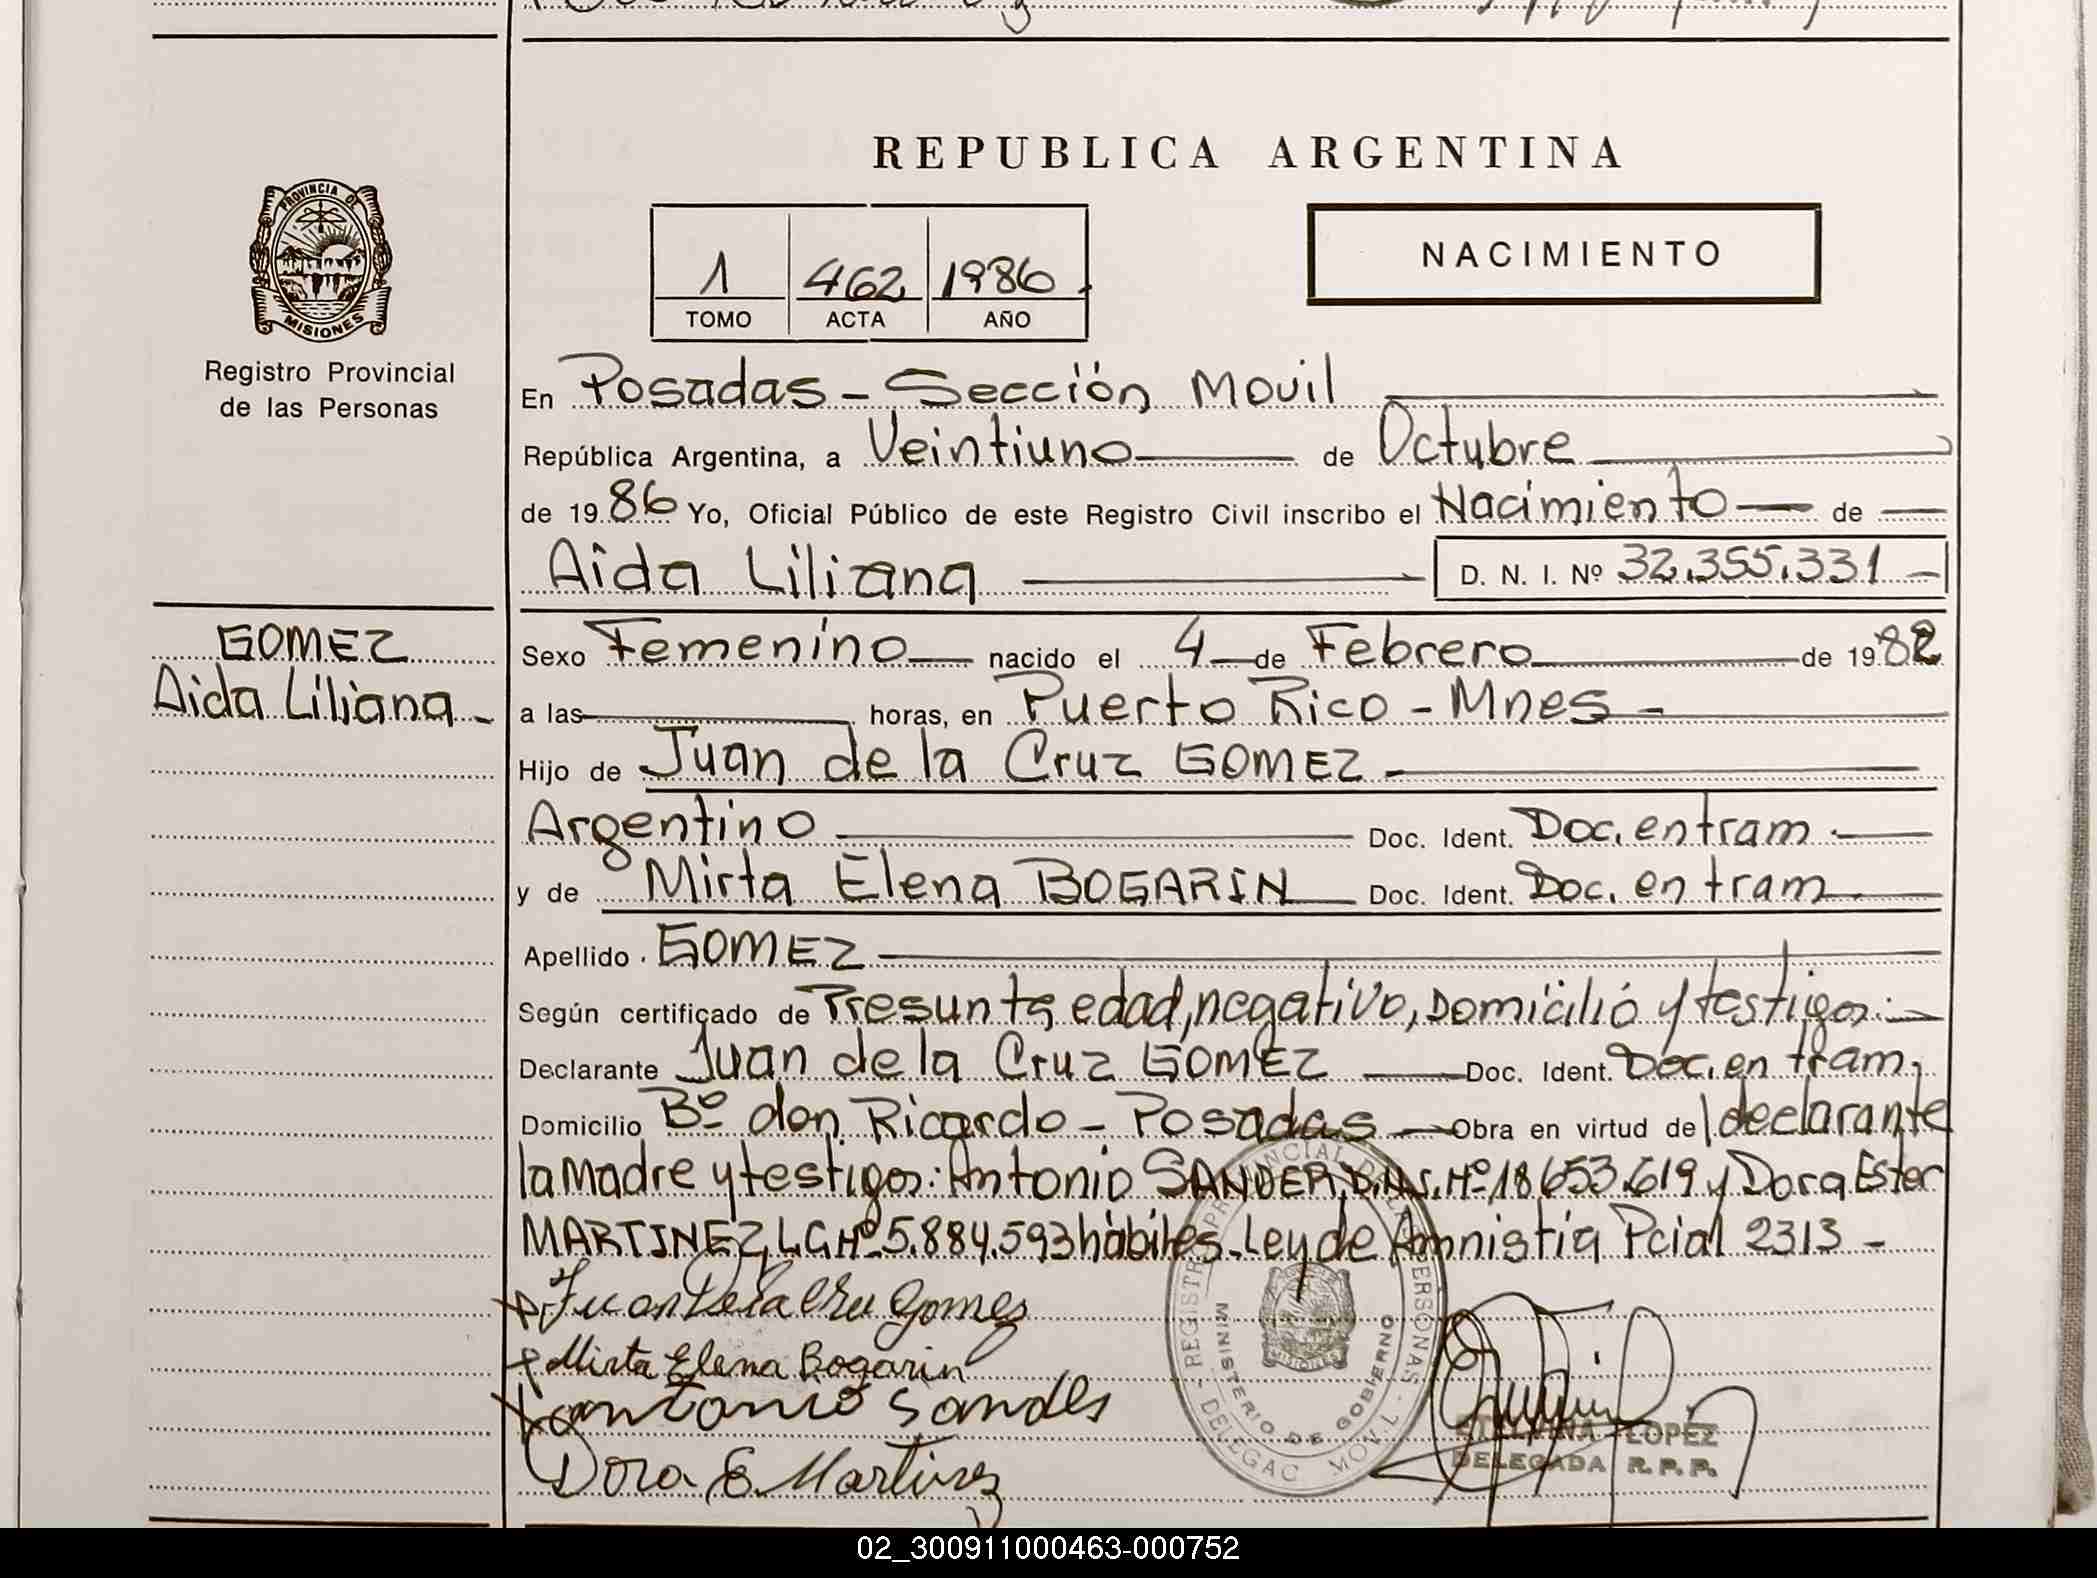 REPUBLICA ARGENTINA
PROVINCIA DE
MISIONES
Registro Provincial
de las Personas
1 462 1986
TOMO ACTA AÑO
NACIMIENTO
En Posadas - Sección Movil
República Argentina, a Veintiuno de Octubre
de 19 86 Yo, Oficial Público de este Registro Civil inscribo el Nacimiento de
Aida Liliana D. N. I. Nº 32.355.331
GOMEZ
Aida Liliana
Sexo Femenino nacido el 4 de Febrero de 19 82
a las horas, en Puerto Rico - Mnes -
Hijo de Juan de la Cruz GOMEZ
Argentino Doc. Ident. Doc. en tram.
y de Mirta Elena BOGARIN Doc. Ident. Doc. en tram.
Apellido GOMEZ
Según certificado de Presunta edad, negativo, Domicilio y testigos:
Declarante Juan de la Cruz GOMEZ Doc. Ident. Doc. en tram.
Domicilio Bº don Ricardo - Posadas Obra en virtud de l declarante
la Madre y testigos: Antonio SANDER, D.N.I. Nº 18.653.619 y Dora Ester
MARTINEZ, L.C. Nº 5.884.593 hábiles. Ley de Amnistia Pcial 2313 -
Juan De la Cru Gomes
Mirta Elena Bogarin
antonio Sandes
Dora E. Martinez
REGISTRO PROVINCIAL DE LAS PERSONAS - DELEGAC. MOVIL -
MINISTERIO DE GOBIERNO
MISIONES
LOPEZ
DELEGADA R.P.P.
02_300911000463-000752